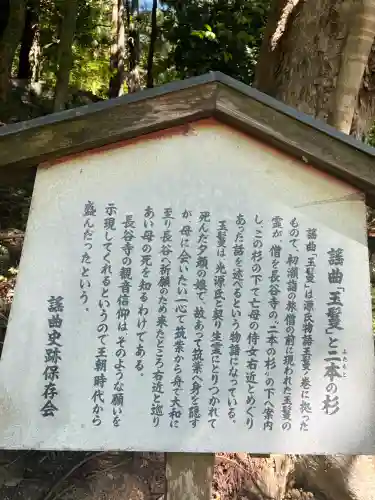 謡曲「玉鬘」と二本の杉
ふたもと
謡曲「玉鬘」は源氏物語玉鬘ノ巻に拠った
もので、初瀬詣の旅僧の前に現われた玉鬘の
霊が、僧を長谷寺の〝二本の杉〟の下へ案内
し、この杉の下で亡母の侍女右近とめぐり
あった話を述べるという物語になっている。
玉鬘は、光源氏と契り生霊にとりつかれて
死んだ夕顔の娘で、故あって筑紫へ身を隠す
が、母に会いたい一心で筑紫から舟で大和に
至り長谷へ祈願のため来たところ右近と巡り
あい母の死を知るわけである。
長谷寺の観音信仰はそのような願いを
示現してくれるというので王朝時代から
盛んだったという。
謡曲史跡保存会